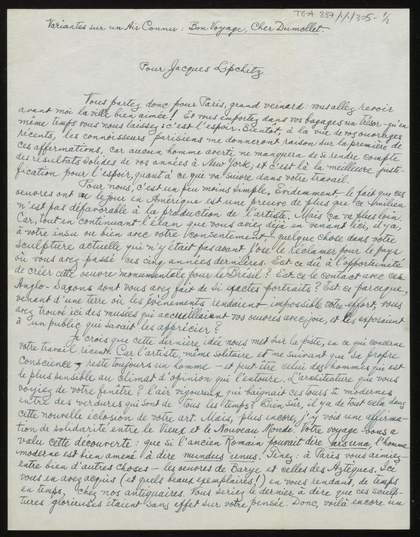 TGA 897/1/1/305-1/3
Variantes sur un Air Connu: Bon Voyage, Cher Dumollet
Pour Jacques Lipchitz
Vous partez donc pour Paris, grand veinard vous allez revoir
avant moi la ville bien aimée! Et vous emportez dans vos bagages un trésor qu'en
même temps vous nous laissez: c'est l'espoir. Bientôt, à la vue de vos ouvrages
récents, les connoisseurs parisiens me donneront raison sur la première de
ces affirmations, car aucun homme averti ne manquera de se rendre compte
des résultats solides de vos années à New York, et c'est là la meilleure justi-
fication pour l'espoir quant à ce qui va suivre dans votre travail.
Pour nous, c'est un peu moins simple. Evidemment le fait que ces
oeuvres ont vu le jour en Amérique est une preuve de plus que ce milieu
n'est pas défavorable à la production de l'artiste. Mais ça va plus loin.
Car, tout en continuant l'élan que vous aviez déjà en venant ici, il y a,
à votre insu ou bien avec votre consentement, quelque chose dans votre
sculpture actuelle qui n'y était pas avant. Puis-je le réclamer pour le pays
où vous avez passé ces cinq années dernières. Est-ce dû à l'opportunité
de créer cette oeuvre monumentale pour le Brésil? Est-ce le contact avec ces
Anglo-Saxons dont vous avez fait de si exactes portraits? Est-ce parceque,
venant d'une terre où les évènements rendaient impossible votre effort, vous
avez trouvé ici des musées qui accueillaient vos oeuvres avec joie, et les exposaient
à un public qui savait les apprécier?
Je crois que cette dernière idée nous met sur la piste, en ce qui concerne
votre travail récent. Car l'artiste, même solitaire et ne suivant que sa propre
conscience, reste toujours un homme - et peut être celui des hommes qui est
le plus sensible au climat d'opinion qui l'entoure. L'architecture que vous
voyiez de votre fenêtre? l'air vigoureux qui baignait ces tours si modernes
entre des verdures qui sont de tous les temps? Bien sûr, il y a de tout cela dans
cette nouvelle éclosion de votre art. Mais, plus encore, j'y vois une affirma-
tion de solidarité entre le Vieux et le Nouveau Monde. Votre voyage vous a
valu cette découverte: que si l'ancien Romain pouvait dire mare nostrum, l'homme
moderne est bien amené à dire mundus unus. Tenez: à Paris vous aimiez -
entre bien d'autres choses - les oeuvres de Barye et celles des Aztèques. Ici
vous en avez acquis (et quels beaux exemplaires!) en vous rendant, de temps
en temps, chez nos antiquaires. Vous seriez le dernier à dire que ces sculp-
tures glorieuses étaient sans effet sur votre pensée. Donc, voilà encore un